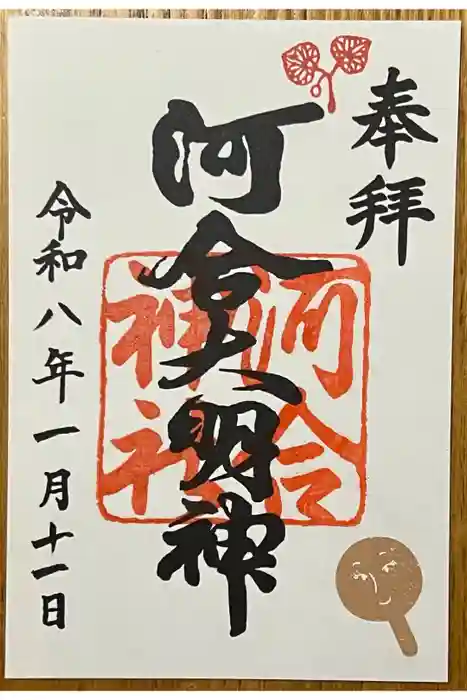 奉拝
河合大明神
河合
神社
令和八年一月十一日